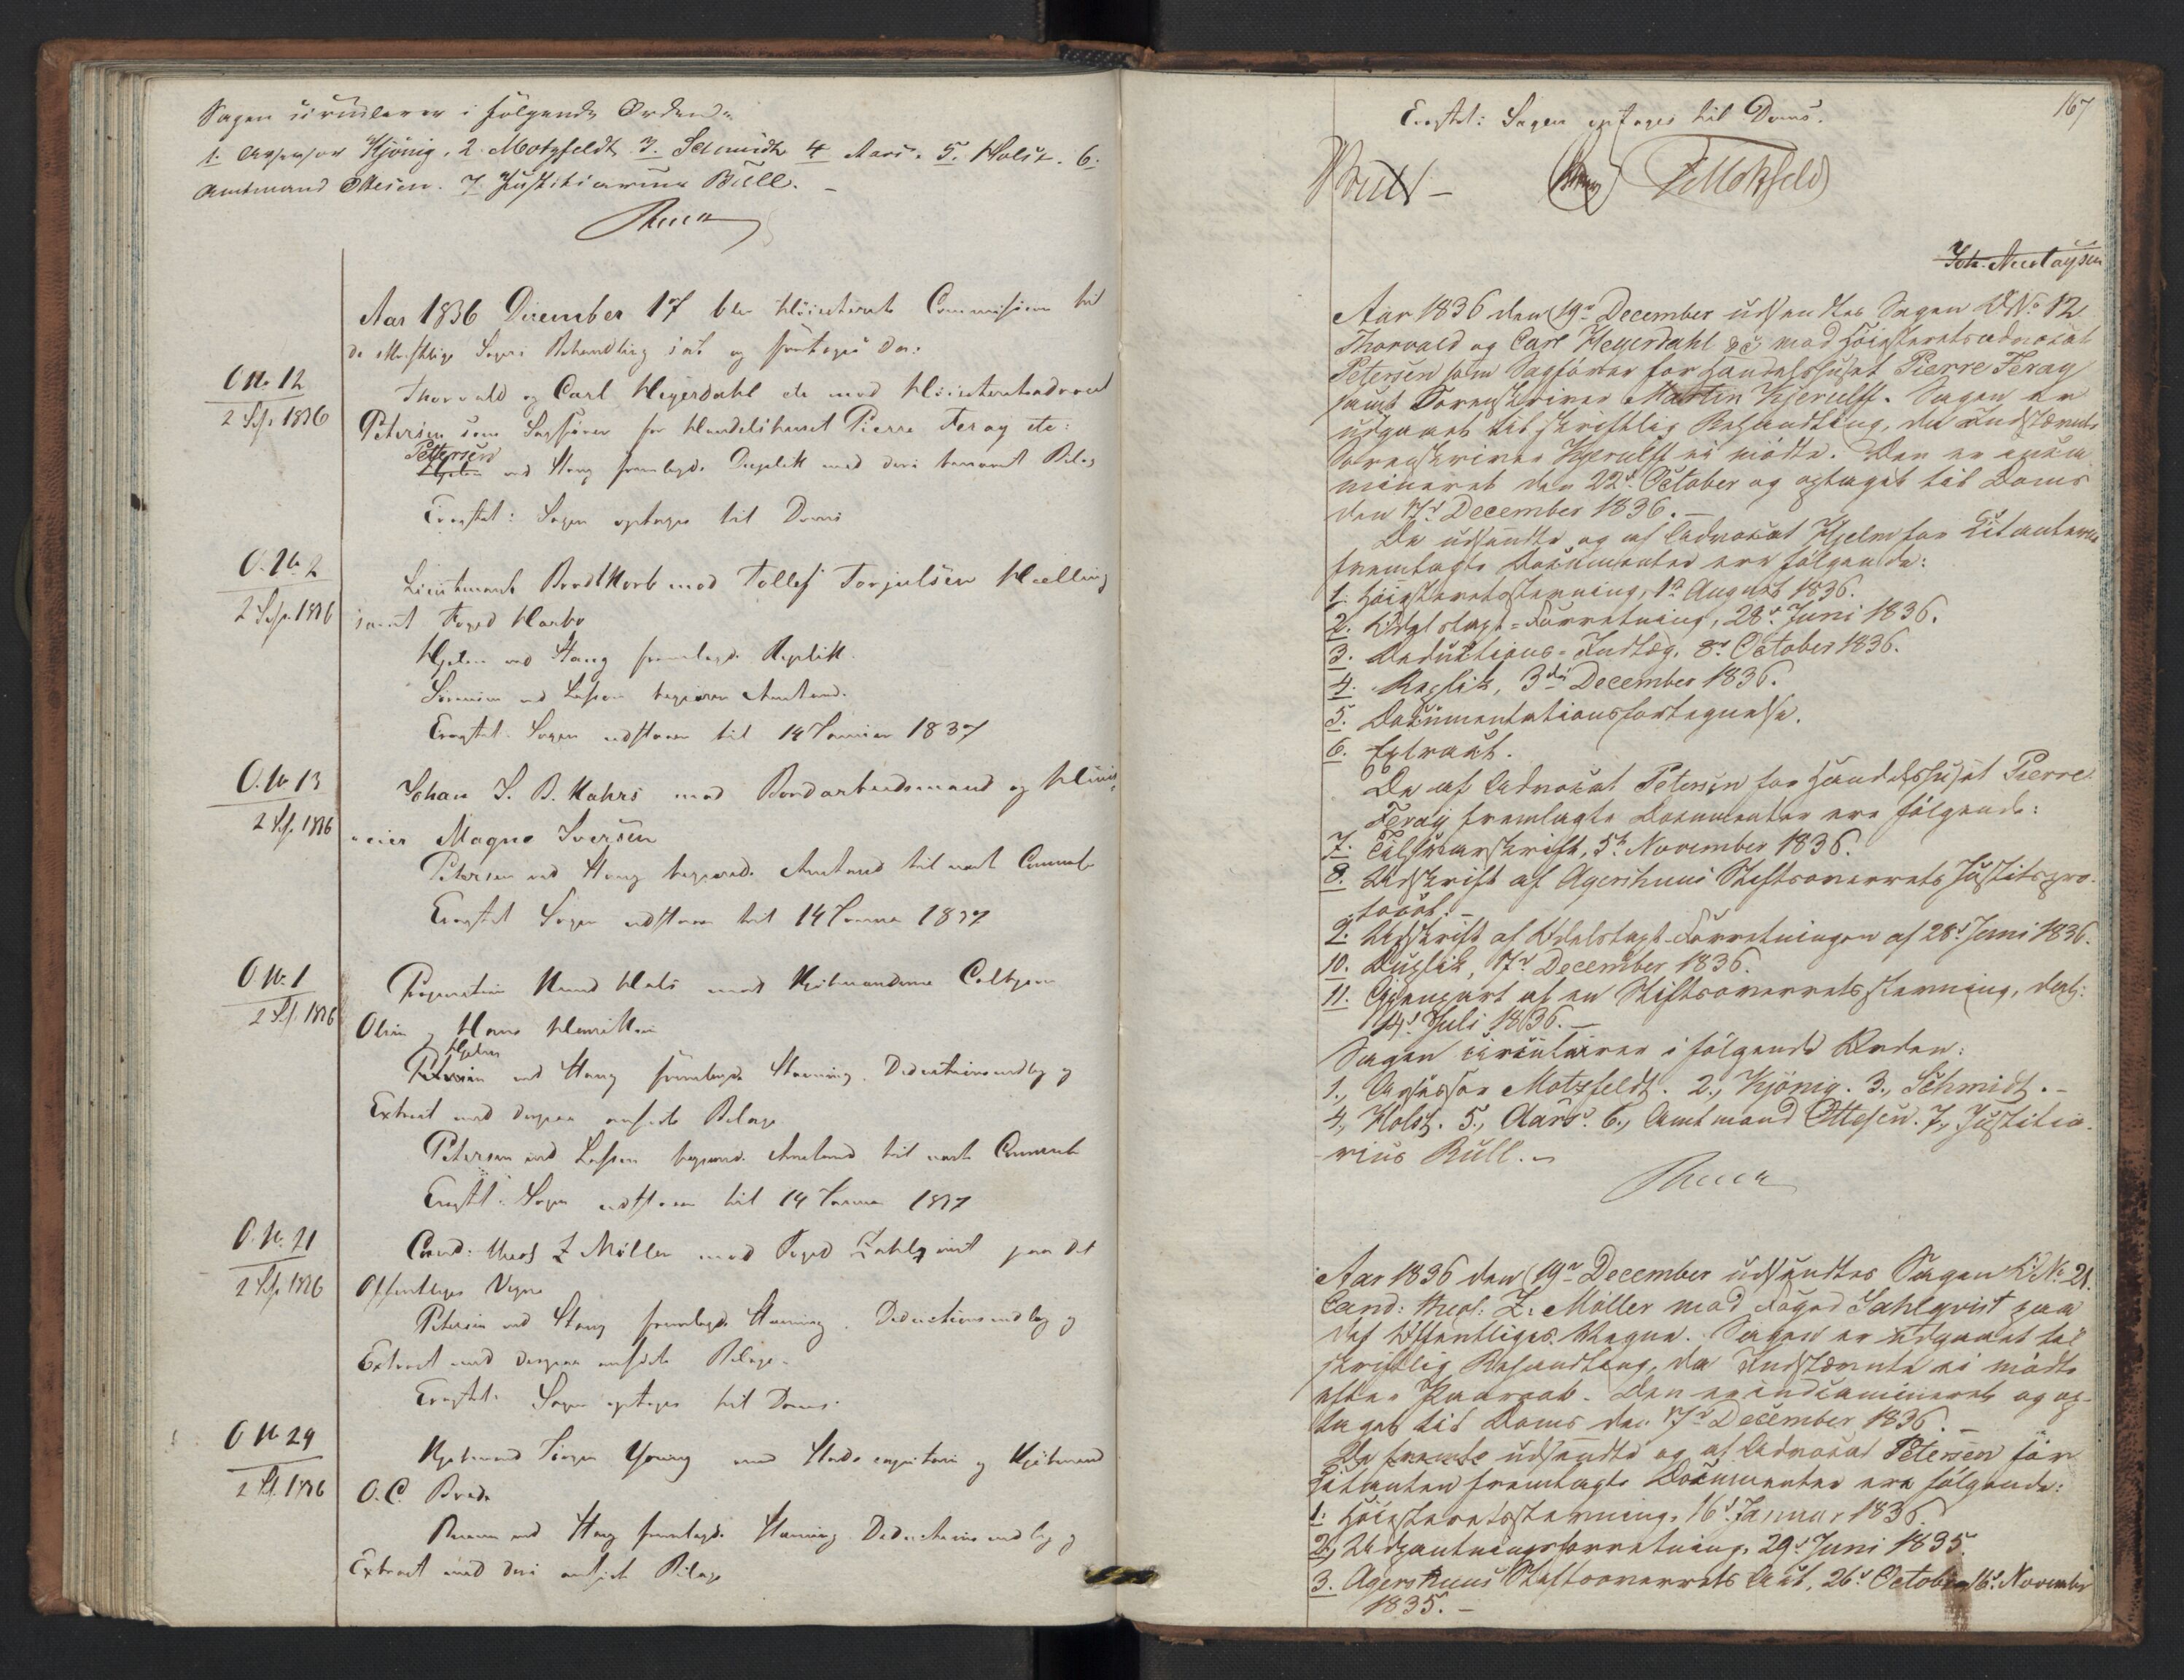 Sagen circulerer i følgende Orden:
1. Assessor Kjönig, 2. Motzfeldt 3. Schmidt 4 Aars. 5. Holst. 6.
Amtmand Ottesen. 7. Justitiarius Bull. –
Aar 1836 December 17 blev Höiesterets Commission til
de skriftlige Sagers Behandling sat og foretages da:
O No 12
2 Sess. 1836
Thorvald og Carl Heyerdahl etc mod Höiesteretsadvocat
Petersen som Sagfører for Handelshuset Pierre Feray etc:
Petersen
Hjelm ved Stang fremlagde Duplik med deri benævnt Bilag
Eragtet: Sagen optages til Doms
O. No 2
2 Sess. 1836
Lieutenant Brodtkorb mod Tollef Torjulsen Hælling
samt Foged Harbo
Hjelm ved Stang fremlagde Replik
Sörensen ved Lassen begjærer Anstand.
Eragtet. Sagen udstaaer til 14 Januar 1837
O. No 13
2 Sess. 1836
Johan S. B. Kahrs mod Bordarbeidsmand og Huus,,
eier Magne Iversen
Petersen ved Stang begjærede Anstand til næste
Eragtet Sagen udstaaer til 14 Januar 1837
O No. 1
2 Sess. 1836
Knud Hals mod Kjöbmændene
Olsen og Hans Henriksen
Hjelm
Petersen ved Stang fremlagde Stævning. Deductionsindlæg og
Extract med dertil Bilage
Petersen ved Lassen begjærede Anstand til næste
Eragtet: Sagen udstaaer til 14 Januar 1837
O. No. 21
2 Sess. 1836
Cand: theol Z Möller mod Foged Sahlqvist paa det
Offentliges Vegne
Petersen ved Stang fremlagde Stævning. Deductionsindlæg og
Extract med Bilage.
Eragtet: Sagen optages til Doms.
O No 29
2 Sess. 1836
Kjöbmand Jörgen Young mod og Kjöbmand
O. C. Brede
ved Stang fremlagde Stævning Deductionsindlæg og
Extract med deri Bilage
167
Eragtet: Sagen optages til Doms.
Bull – Motzfeldt
Aar 1836 den 19de December udsendtes Sagen O No 12
Thorvald og Carl Heyerdahl &c mod Höiesteretsadvocat
Petersen som Sagförer for Handelshuset Pierre Feray
samt Sorenskriver Martin Kjerulff. Sagen er
udgaaet til skriftlig Behandling, da Indstævnte
Sorenskriver Kjerulff ei mödte. Den er incam
mineret den 22de October og optaget til Doms
den 17de December 1836. –
De udsendte og af Advocat Hjelm for Citanterne
fremlagte Documenter ere fölgende:
1. Höiesteretsstevning, 1ste August 1836.
2. Odelstaxt-Forretning, 28de Juni 1836.
3. Deductions-Indlæg, 8de October 1836.
4. Replik, 3die December 1836.
5. Documentationsfortegnelse.
6. Extract.
De af Advocat Petersen for Handelshuset Pierre
Feray fremlagte Documenter ere fölgende:
7. Tilsvarskrift, 5te November 1836.
8. Udskrift af Agershuus Stiftsoverrets Justitspro-
tocol. –
9. Udskrift af Odelstaxt-Forretningen af 28de Juni 1836.
10. Duplik, 17de December 1836.
11. Gjenpart af en Stiftsoverretsstevning, dat:
14de Juli 1836. –
Sagen circulerer i fölgende Orden:
1., Assessor Motzfeldt. 2., Kjönig. 3., Schmidt. –
4, Holst. 5., Aars. 6., Amtmand Ottesen. 7., Justitia-
rius Bull. –
Aar 1836 den 19de December udsendtes Sagen O. No 21.
Cand: theol: Z. Möller mod Foged Sahlqvist paa
det Offentliges Vegne. Sagen er udgaaet til
skriftlig Behandling, da Indstævnte ei mödte
efter Paaraab. Den er incamineret og op-
taget til Doms den 17de December 1836. –
De udsendte og af Advocat Petersen for
Citanten fremlagte Documenter ere fölgende:
1. Höiesteretsstevning, 16de Januar 1836.
2., Udpantningsforretning, 29de Juni 1835.
3. Agershuus Stiftsoverrets Act, 26de October 16de November
1835. –